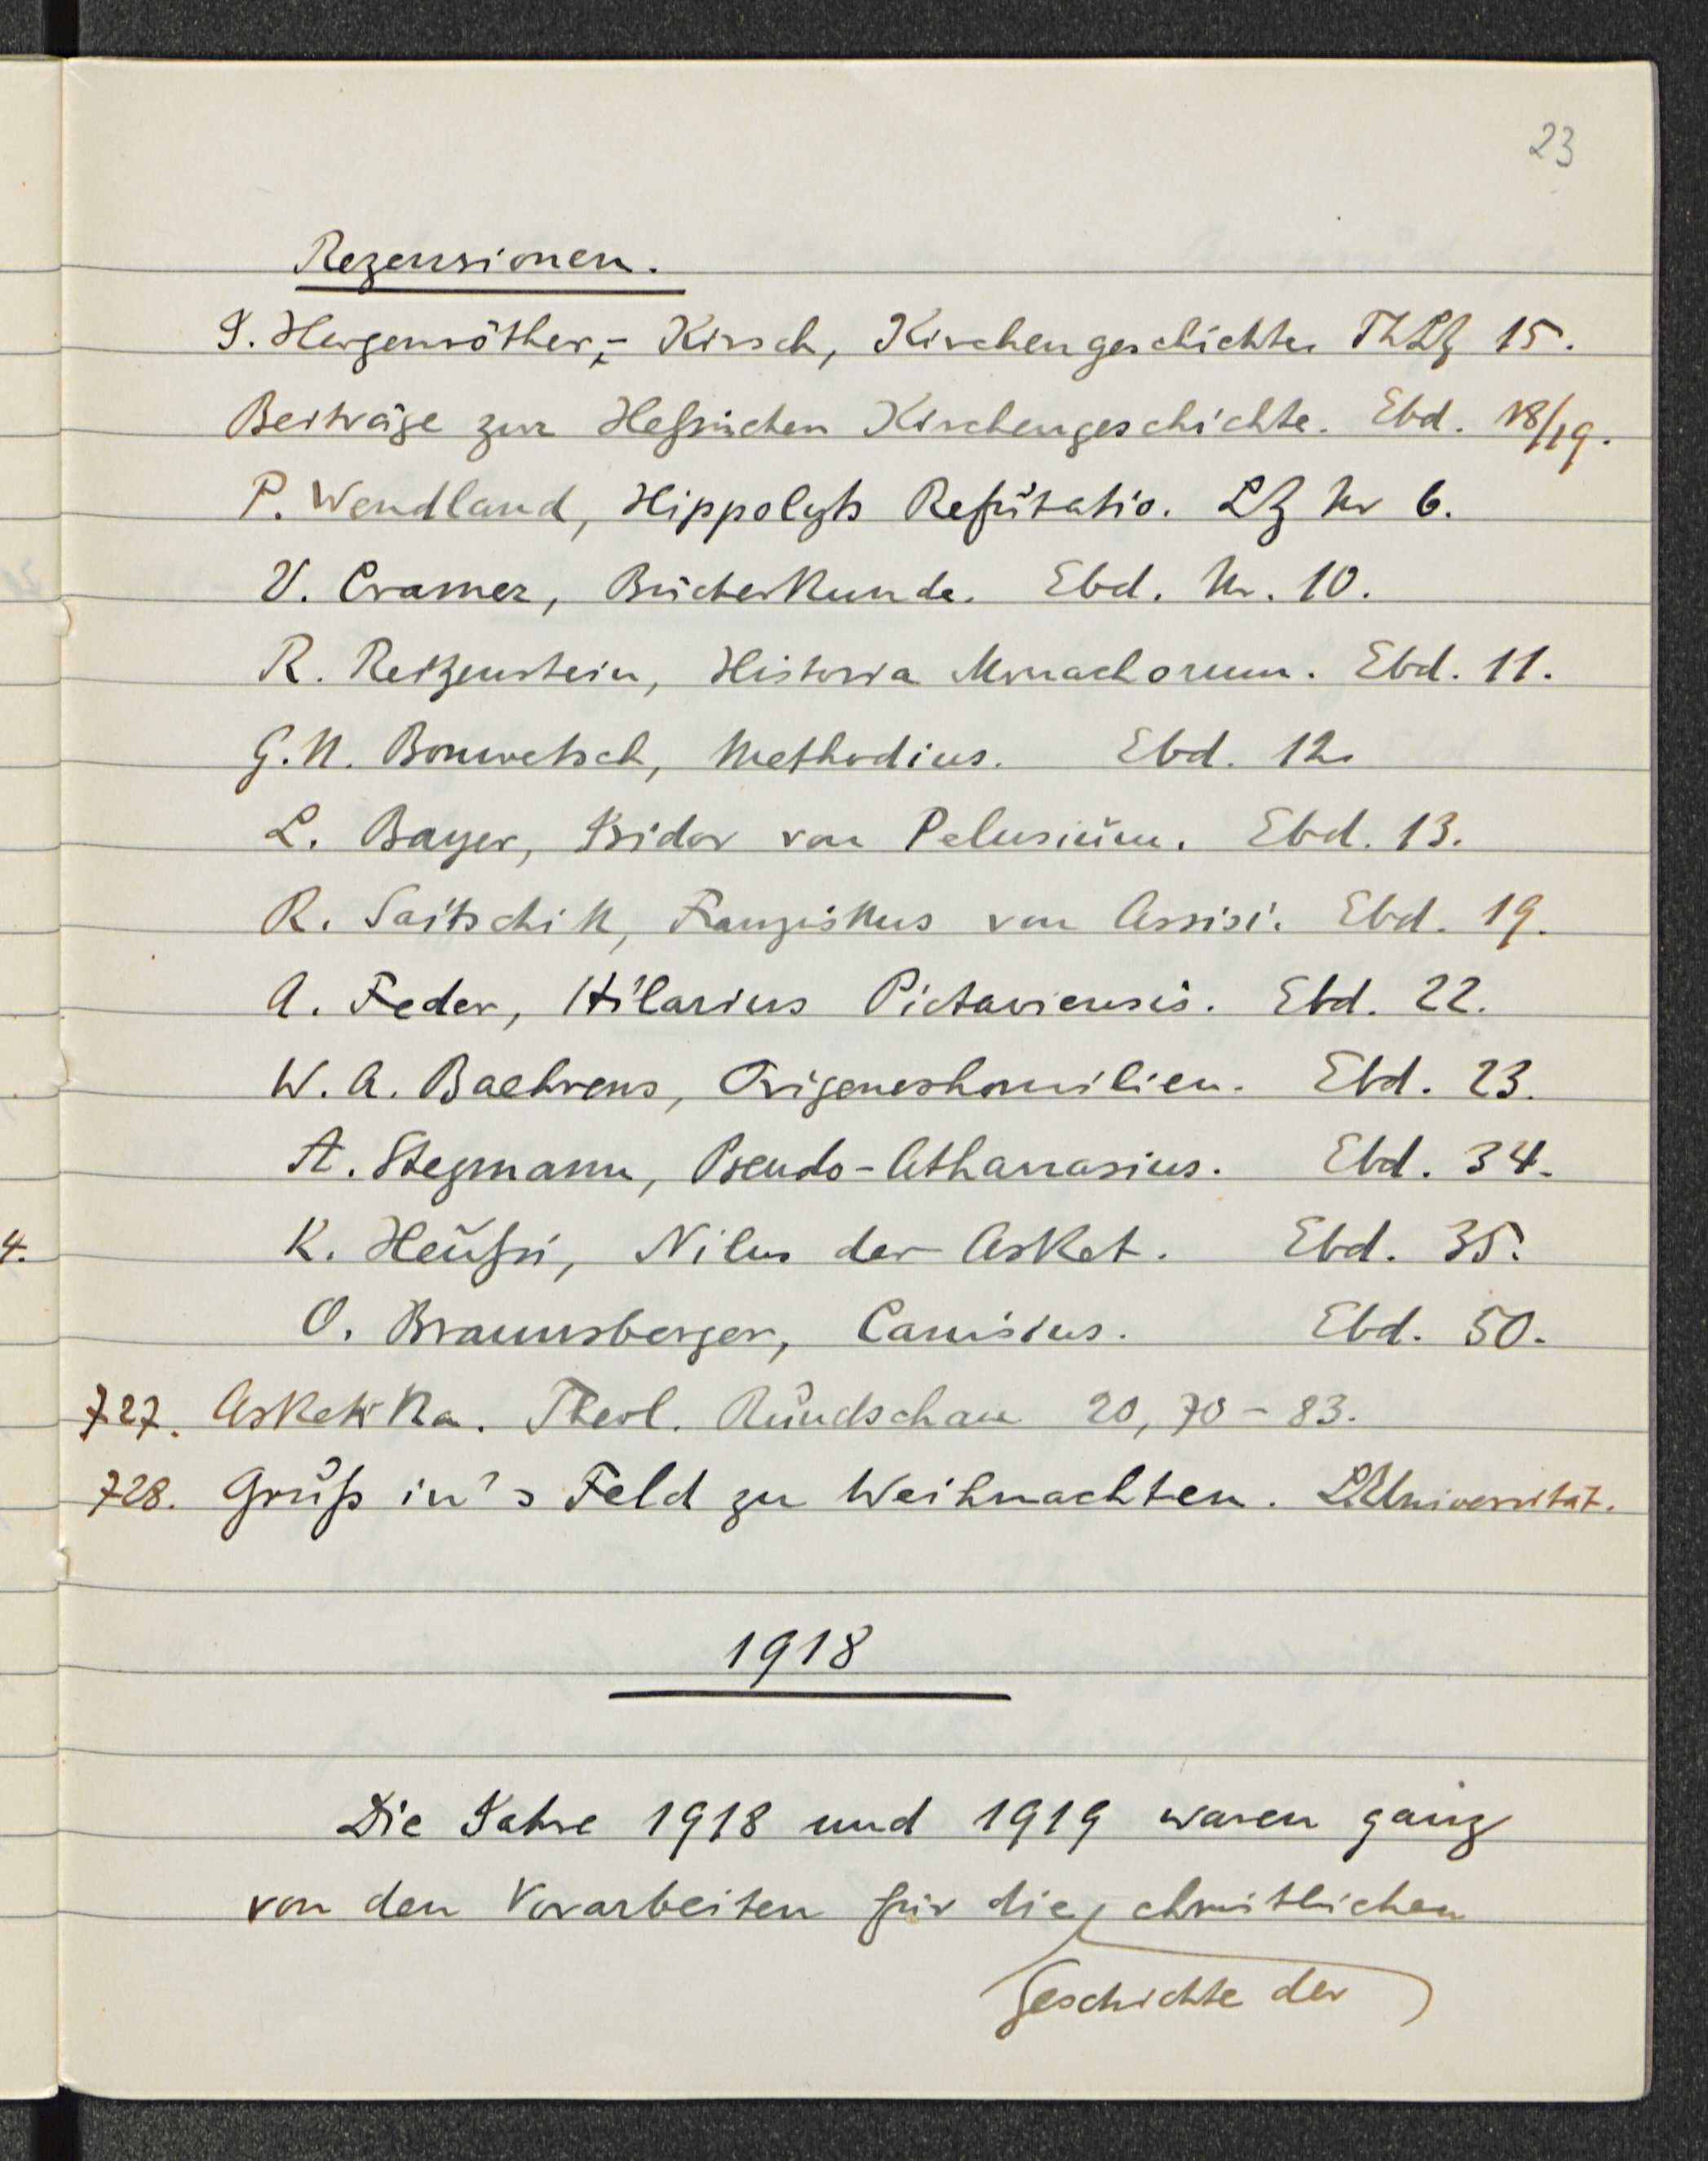 23
Rezensionen.
J. Hergenröther,- Kirsch, Kirchengeschichte. ThLZ 15.
Beiträge zur Heßischen Kirchengeschichte. Ebd. 18/19.
P. Wendland, Hippolyts Refutatio. LZ Nr 6.
V. Cramer, Bücherkunde. Ebd. Nr. 10.
R. Reitzenstein, Historia Monachorum. Ebd. 11.
G. N. Bonwetsch, Methodius. Ebd. 12.
L. Bayer, Isidor von Pelusium. Ebd. 13.
R. Saitschik, Franziskus von Assisi. Ebd. 19.
A. Feder, Hilarius Pictaviensis. Ebd. 22.
W. A. Baehrens, Origeneshomilien. Ebd. 23.
A. Stegmann, Pseudo-Athanasius. Ebd. 34.
4. K. Heußi, Nilus der Asket. Ebd. 35.
O. Braunsberger, Canisius. Ebd. 50.
727. Asketika. Theol. Rundschau 20, 70-83.
728. Gruß in's Feld zu Weihnachten. Universität.
1918
Die Jahre 1918 und 1919 waren ganz
von den Vorarbeiten für die christlichen
Geschichte der